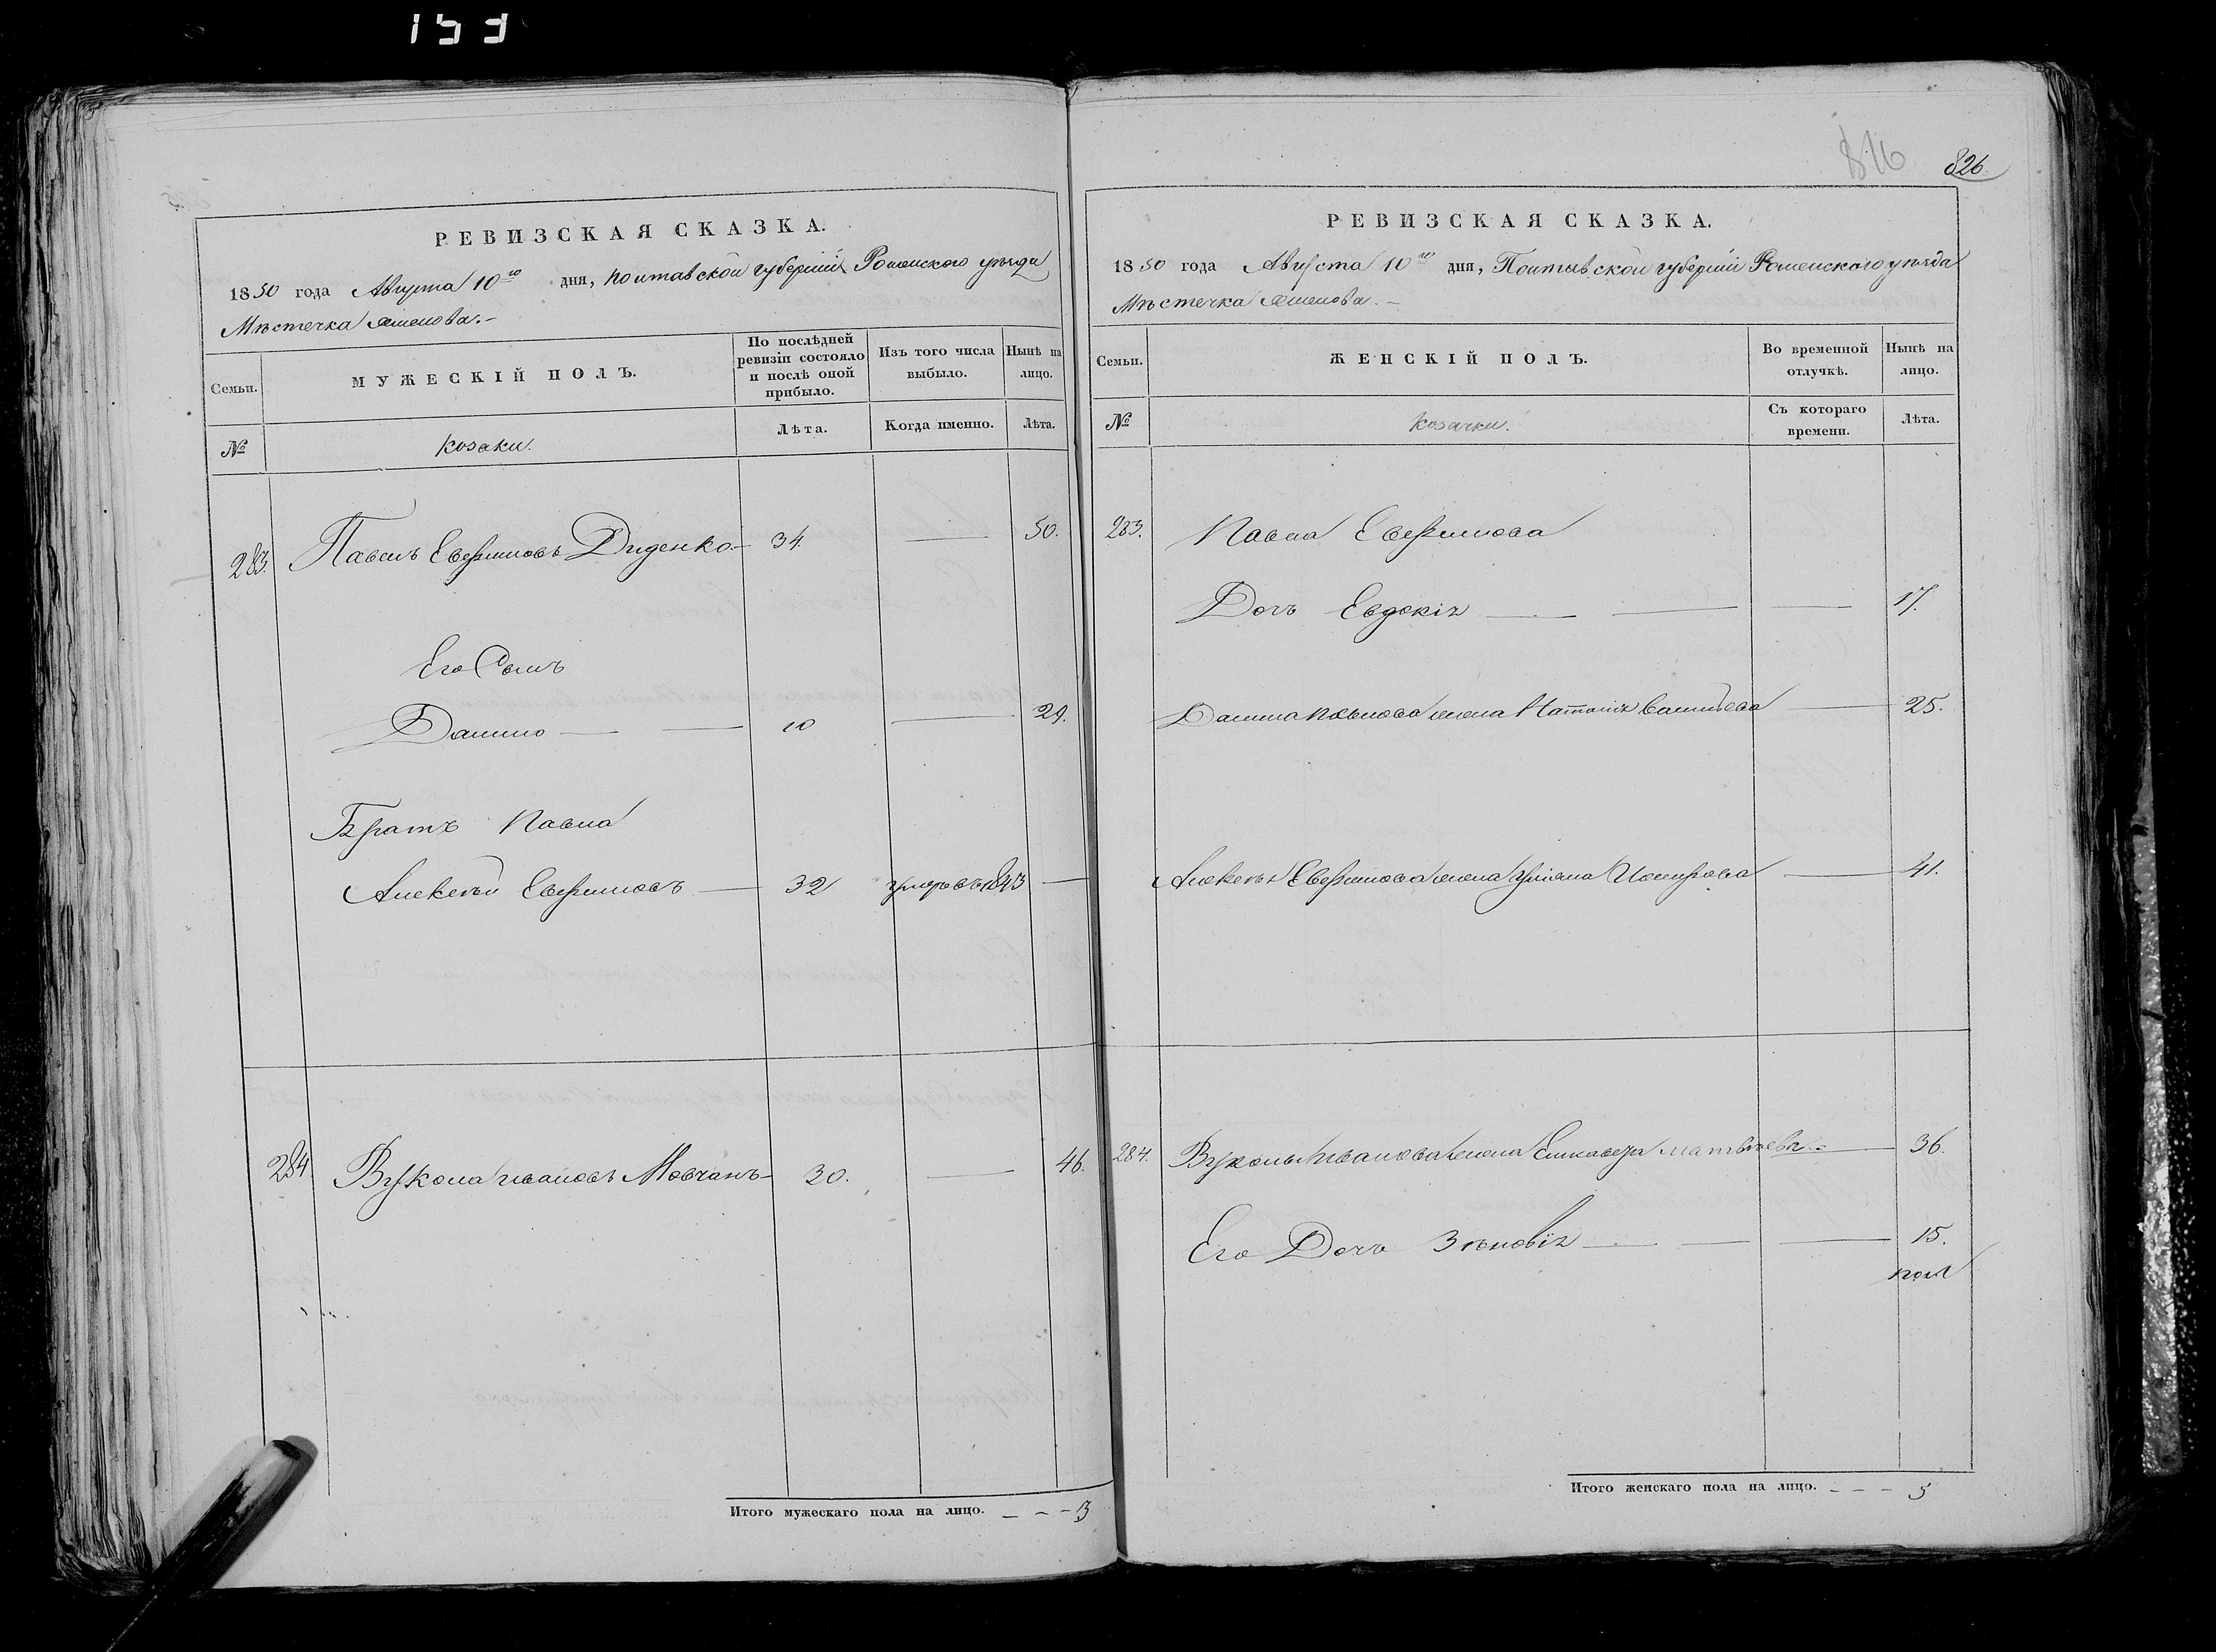 153
816
826.
РЕВИЗСКАЯ СКАЗКА.
1850 года Августа 10го дня, Полтавской губерніи Роменского уѣзда
Мѣстечка
Семьи.
МУЖЕСКІЙ ПОЛЪ.
По послѣдней ревизіи состояло и послѣ оной прибыло.
Изъ того числа выбыло.
Нынѣ на лицо.
№
Козаки.
Лѣта.
Когда именно.
Лѣта.
283. Павелъ Евфимовъ Диденко 34. 50.
Его Сынъ
Данило 10 29.
Братъ Павла
Алексѣй Евфимовъ 32 умеръ въ 1843
284 Вукола Ивановъ Мовчанъ 30. 46.
Итого мужескаго пола на лицо. 3
РЕВИЗСКАЯ СКАЗКА.
1850 года Августа 10го дня, Полтавской губерніи Роменского уѣзда
Мѣстечка
Семьи.
ЖЕНСКІЙ ПОЛЪ.
Во временной отлучкѣ.
Нынѣ на лицо.
№
Козачки.
Съ котораго времени.
Лѣта.
283. Павла Евфимова
Дочь Евдокія 17.
Данила Павлова жена Наталія Василева 25.
Алексѣя Евфимова жена Уліяна 41.
284. Вуколы Иванова жена Елисавета Матвѣева 36.
Его Дочь Зѣновія 15.
пол
Итого женскаго пола на лицо. 5